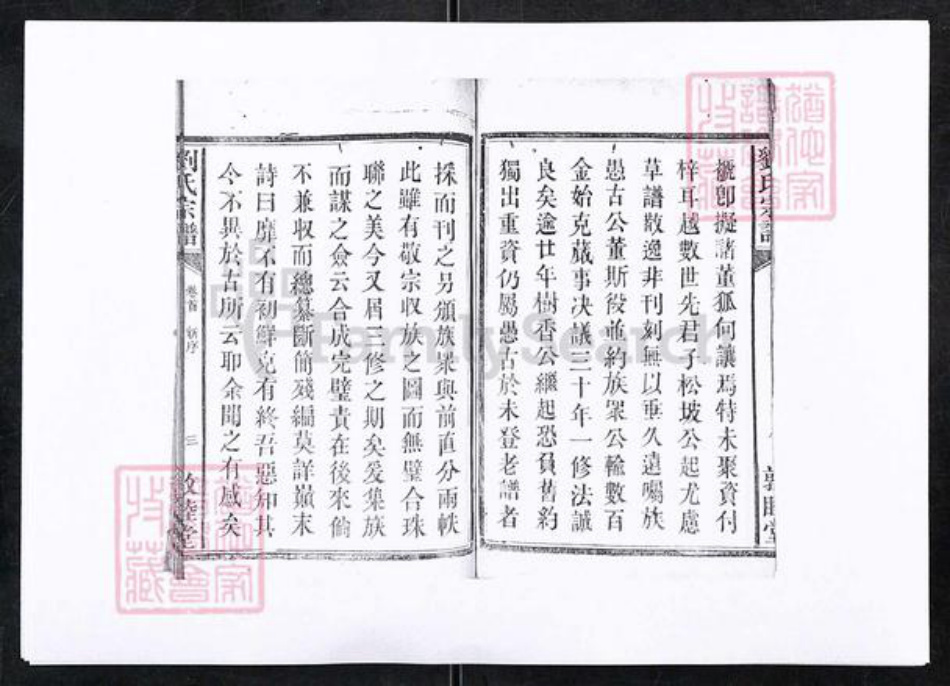 劉氏宗譜
號卽擬諸董狐何讓焉特未聚資付
梓耳越數世先君子松坡公起尤慮
草譜散逸非刊刻無以垂久遠囑族
愚古公董斯役並約族眾公輸數百
金始克蕆事决議三十年一修法誠
良矣逾廿年樹香公繼起恐負舊約
獨出重資仍屬愚古於未登老譜者
敦睦堂
採而刊之另頒族眾與前直分兩帙
此雖有敬宗收族之圖而無璧合珠
聯之美今又屆三修之期矣爰集族
而謀之僉云合成完璧責在後來倘
不兼収而總纂斷簡殘編莫詳巔末
詩曰靡不有初鮮克有終吾惡知其
今不異於古所云耶余聞之有感矣
劉氏宗譜
卷首 新序
三
敦睦堂
FamilySearch